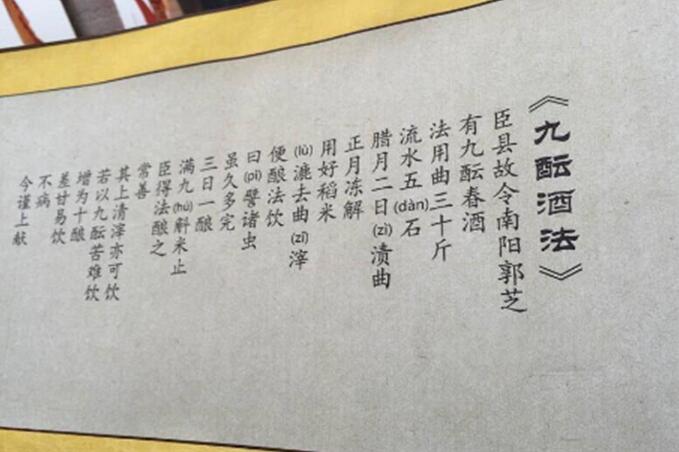 《九酝酒法》
臣县故令南阳郭芝
有九酝春酒
法用曲三十斤
流水五(dàn)石
腊月二日(zì)渍曲
正月冻解
用好稻米
(lù)漉去曲(zǐ)滓
便酿法饮
曰(pì)譬诸虫
虽久多完
三日一酿
满九(hú)斛米止
臣得法酿之
常善
其上清滓亦可饮
若以九酝苦难饮
增为十酿
差甘易饮
不病
今谨上献